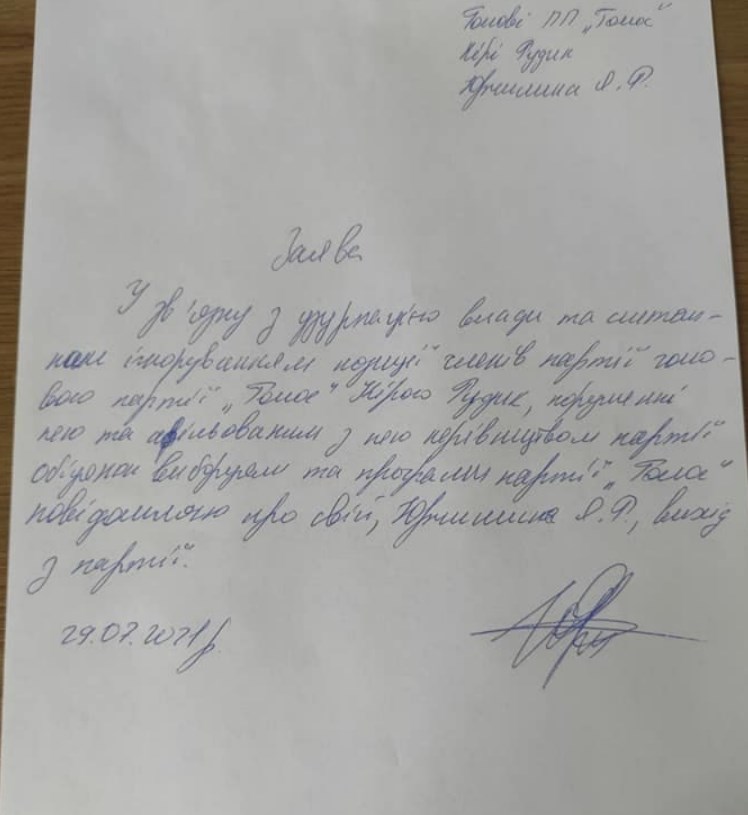 Голові ПП „Голос"
Кірі Рудик
Юрчишина Я. Р.
Заява
У зв'язку з узурпацією влади та систем-
ним ігноруванням позиції членів партії голо-
вою партії „Голос" Кірою Рудик, порушенні
нею та афільованим з нею керівництвом партії
обіцянок виборцям та програми партії „Голос"
повідомляю про свій, Юрчишина Я. Р., вихід
з партії.
29.07.2021р.